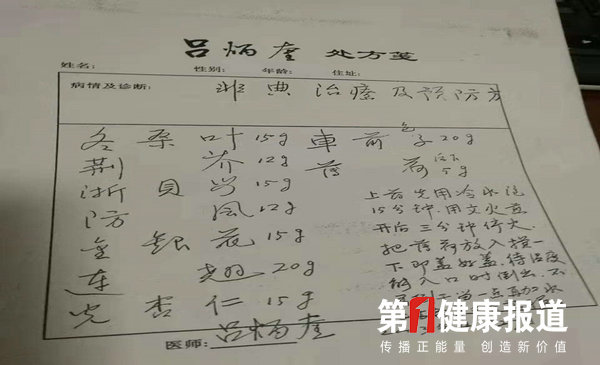 吕炳奎 处方笺
姓名: 性别: 年龄: 住址:
病情及诊断: 非典治療及预防方
冬桑叶15g 車前子20g 包
荆芥12g 薄荷5g 后下
浙貝母15g
防風12g
金銀花15g
连翘20g
光杏仁15g
上药先用冷水泡
15分钟.用文火煎
开后三分钟停火.
把薄荷放入搅一
下即盖好盖.待温度
能入口时倒出.不
医师: 吕炳奎
第1健康报道
传播正能量 创造新价值